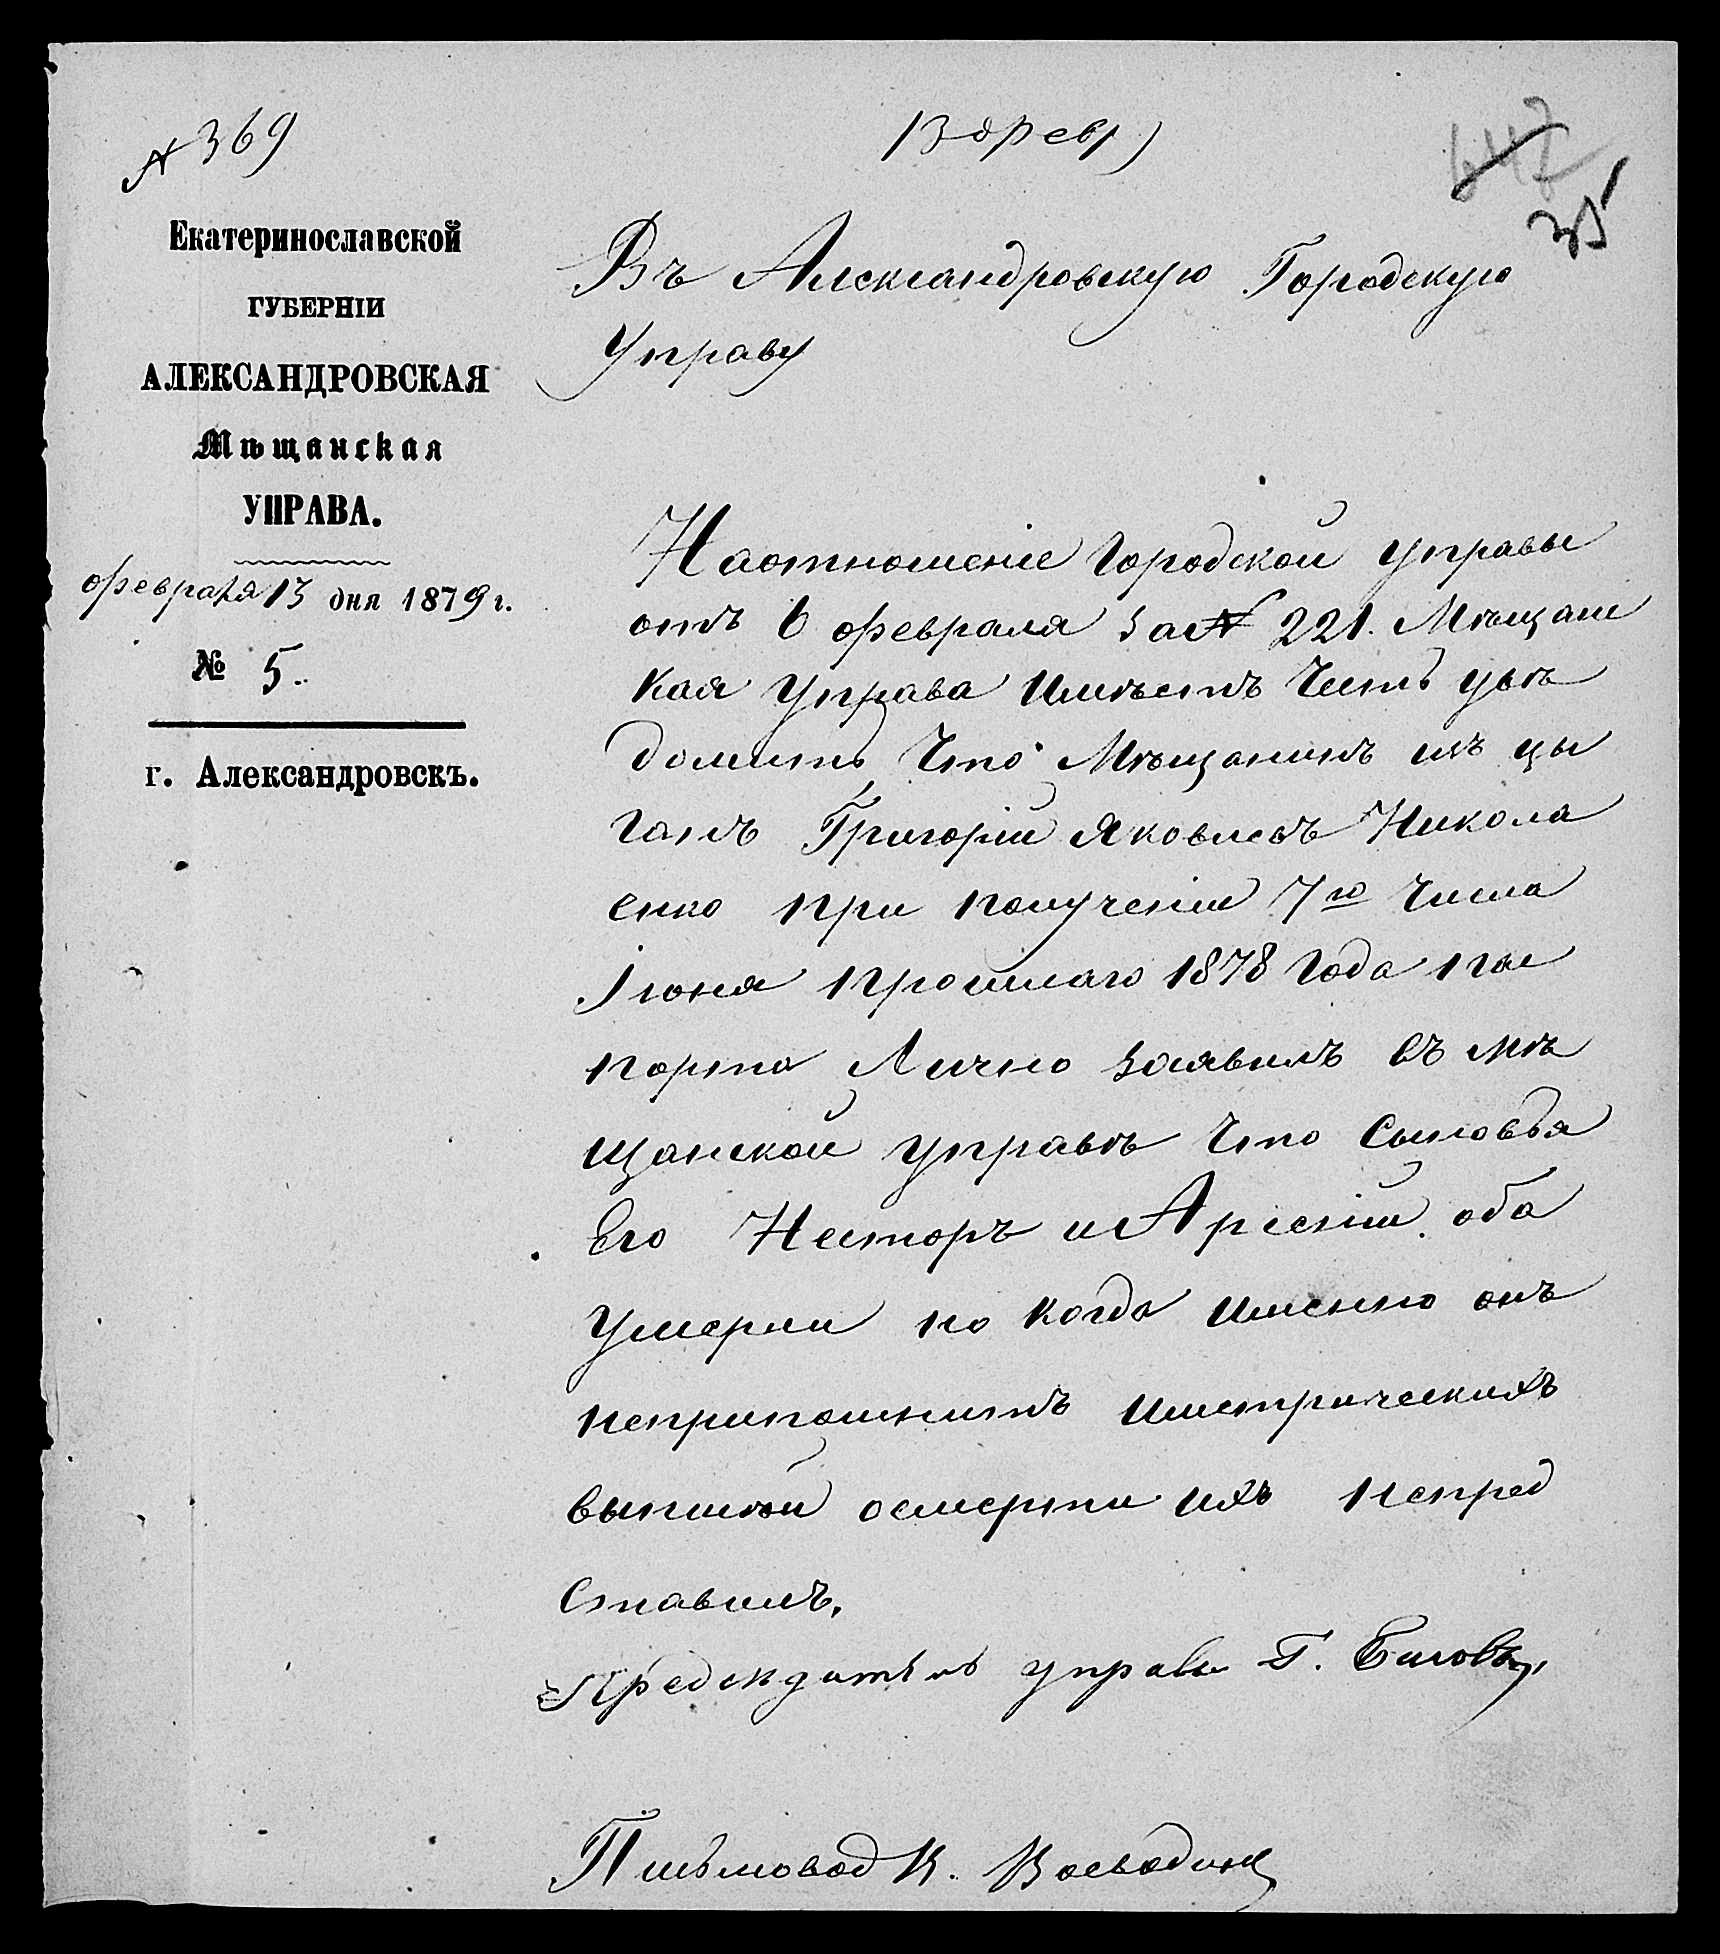 № 369
13 февр
647
35
Екатеринославской
ГУБЕРНІИ
АЛЕКСАНДРОВСКАЯ
Мѣщанская
УПРАВА.
февраля 13 дня 1879 г.
№ 5.
г. Александровскъ.
Въ Александровскую Городскую
Управу
Наотношеніе Городской управы
отъ 6 февраля за № 221. Мѣщанс
кая управа имѣетъ честь увѣ
домить что Мѣщанинъ изъ цы
ганъ Григорій Яковлевъ Никола
енко при полученіи 7го числа
Іюня прошлаго 1878 года пас
порта Лично заявилъ въ мѣ
щанской управѣ что сыновья
Его Несторъ и Арсеній оба
умерли но когда именно онъ
неприпомнитъ иметрическихъ
выписей осмерти ихъ непред
ставилъ.
Председатель управы Г.
Письмовод К. Воеводин